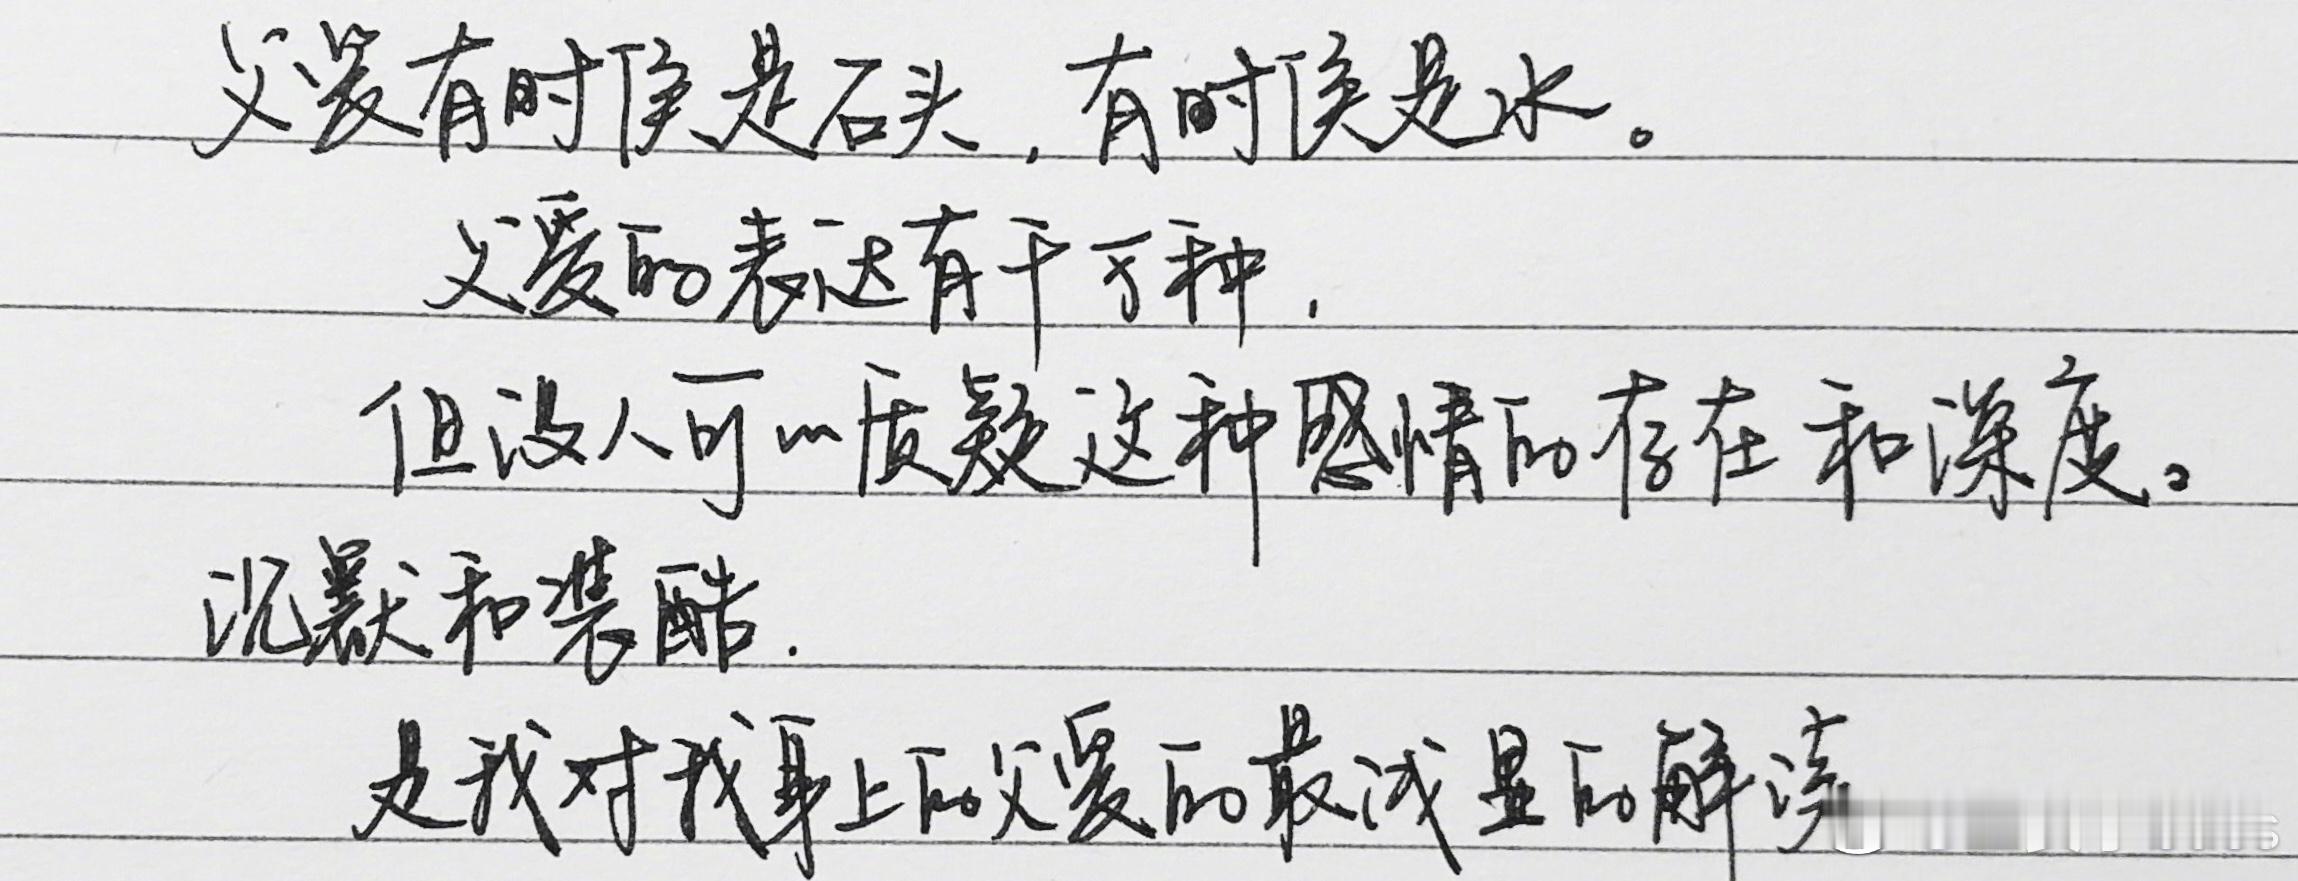 父爱有时候是石头，有时候是水。
父爱的表达有千万种，
但没人可以质疑这种感情的存在和深度。
沉默和装酷．
是我对我身上的父爱的最浅显的解读